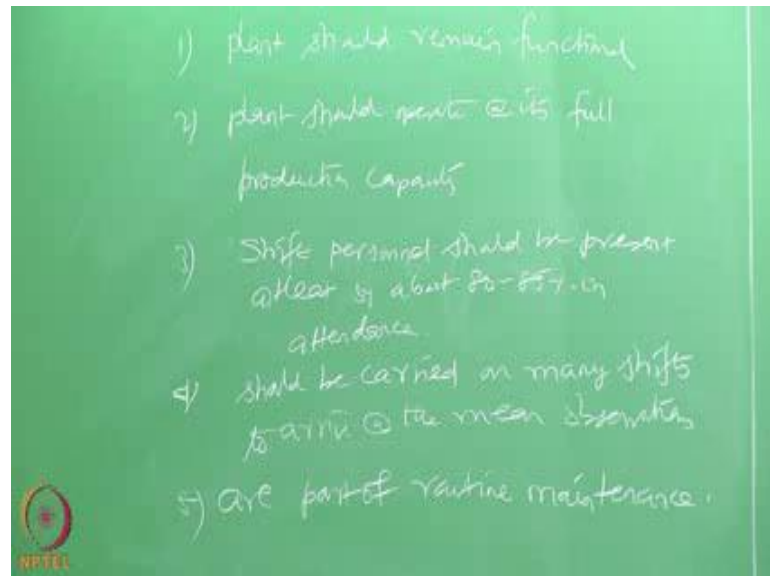 1) plant should remain functional
2) plant should operate @ its full
production capacity
3) Shift personnel should be present
atleast by about 80-85%. in
attendance
4) should be carried on many shifts
to arrive @ the mean observation
5) are part of routine maintenance.
NPTEL